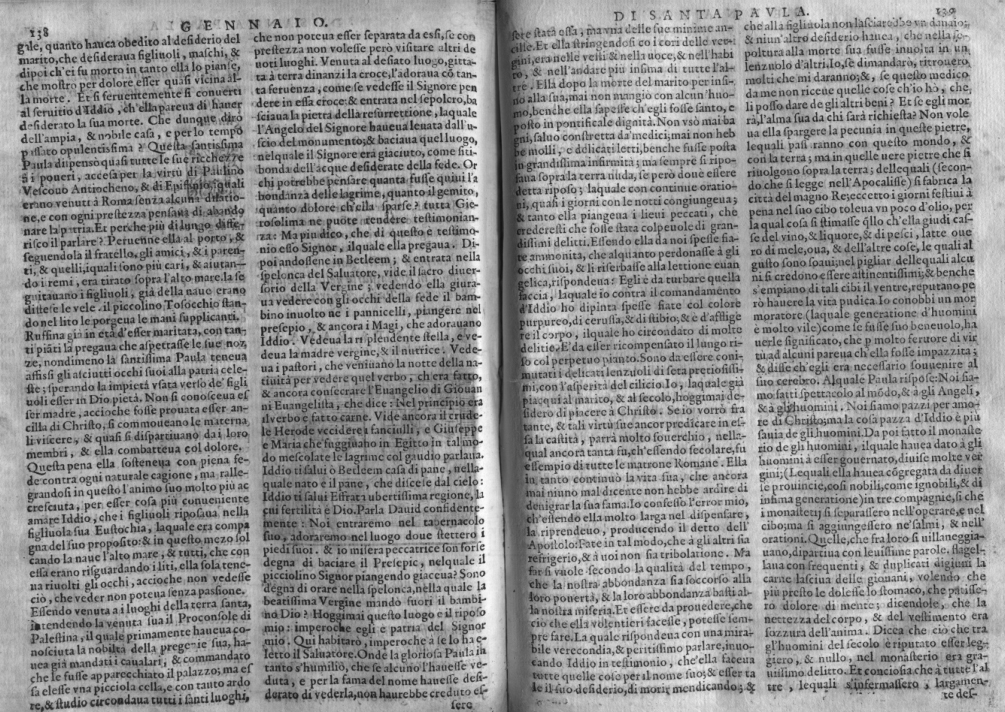 138
GENNAIO.
gale, quanto hauea obedito al desiderio del
marito, che desideraua figliuoli, maschi, &
dipoi ch'ei fu morto in tanto ella lo pianse,
che mostrò per dolore esser quasi vicina al-
la morte. Et sì feruentemente si conuertì
al seruitio d'Iddio, ch'ella pareua di hauer
desiderato la sua morte. Che dunque dirò
dell'ampia, & nobile casa, e per lo tempo
passato opulentissima? Questa santissima
Paula dispensò quasi tutte le sue ricchezze
a i poueri, accesa per la virtù di Paulino
Vescouo Antiocheno, & di Epifanio, quali
erano venuti à Roma senza alcuna dilatio-
ne, e con ogni prestezza pensaua di abando
nare la patria. Et perche più di lungo diffe-
risco il parlare? Peruenne ella al porto, &
seguendola il fratello, gli amici, & i paren-
ti, & quelli, iquali sono più cari, & aiutan-
do i remi, era tirato sopra l'alto mare. la se
guitauano i figliuoli, già della naue erano
distese le vele. il piccolino Tosocchio stan-
do nel lito le porgeua le mani supplicanti.
Ruffina già in età d'esser maritata, con tan-
ti piáti la pregaua che aspettasse le sue noz
ze, nondimeno la santissima Paula teneua
affissi gli asciutti occhi suoi alla patria cele-
ste: sperando la impietà vsata verso de' figli
uoli esser in Dio pietà. Non si conosceua es
ser madre, accioche fosse prouata esser an-
cilla di Christo, si commoueano le materna
li viscere, & quasi si dispartiuano da i loro
membri, & ella combatteua col dolore.
Questa pena ella sosteneua con piena fe-
de contra ogni naturale cagione, ma ralle-
grandosi in questo l'animo suo molto più ac
cresceuta, per esser cosa più conueniente
amare Iddio, che i figliuoli riposaua nella
figliuola sua Eustochia, laquale era compa
gna del suo proposito: & in questo mezo sol
cando la naue l'alto mare, & tutti, che con
essa erano risguardando i liti, ella sola tene-
ua riuolti gli occhi, accioche non vedesse
ciò, che veder non poteua senza passione.
Essendo venuta a i luoghi della terra santa,
intendendo la venuta sua il Proconsole di
Palestina, il quale primamente haueua co-
nosciuta la nobiltà della progenie sua, ha-
uea già mandati i caualari, & commandato
che le fusse apparecchiato il palazzo; ma es
sa elesse vna picciola cella, e con tanto ardo
re, & studio circondaua tutti i santi luoghi,
che non poteua esser separata da essi, se con
prestezza non volesse però visitare altri de
uoti luoghi. Venuta al desiato luogo, gitta-
ta à terra dinanzi la croce, l'adoraua cō tan-
ta feruenza, come se vedesse il Signore pen
dere in essa croce: & entrata nel sepolcro, ba
sciaua la pietra della resurrettione, laquale
l'Angelo del Signore haueua leuata dall'u-
scio del monumento; & baciaua quel luogo,
nelquale il Signore era giacciuto, come siti-
bonda dell'acque desiderate della fede. Or
chi potrebbe pensare quanta fusse quiui l'a
bondanza delle lagrime, quanto il gemito,
quanto dolore ch'ella sparse? tutta Gie-
rosolima ne puote rendere testimonian-
za: Ma piu dico, che di questo è testimo-
nio esso Signor, ilquale ella pregaua. Di-
poi andossene in Betleem; & entrata nella
spelonca del Saluatore, vide il sacro diuer-
sorio della Vergine; vedendo ella giura-
ua vedere con gli occhi della fede il bam-
bino inuolto ne i pannicelli, piangere nel
presepio, & ancora i Magi, che adorauano
Iddio. Vedeua la risplendente stella, e ve-
deua la madre vergine, & il nutrice. Vede-
ua i pastori, che veniuano la notte della na-
tiuità per vedere quel verbo, ch'era fatto,
& ancora consecrare l'Euangelio di Giouan
ni Euangelista, che dice: Nel principio era
il verbo è fatto carne. Vide ancora il crude-
le Herode vccidere i fanciulli, e Giuseppe
e Maria che fuggiuano in Egitto in tal mo-
do mescolate le lagrime col gaudio parlaua.
Iddio ti salui ò Betleem casa di pane, nella-
quale nato è il pane, che discese dal cielo:
Iddio ti salui Effrata ubertissima regione, la
cui fertilità è Dio. Parla Dauid confidente-
mente: Noi entraremo nel tabernacolo
suo, adoraremo nel luogo doue stettero i
piedi suoi. & io misera peccatrice son forse
degna di baciare il Presepic, nelquale il
picciolino Signor piangendo giaceua? Sono
degna di orare nella spelonca, nella quale la
beatissima Vergine mandò fuori il bambi-
no Dio? Hoggimai questo luogo è il riposo
mio: imperoche egli è patria del Signor
mio. Qui habitarò, imperoche à se lo ha e-
letto il Saluatore. Onde la gloriosa Paula in
tanto s'humiliò, che se alcuno l'hauesse ve-
duta, e per la fama del nome hauesse desi-
derato di vederla, non haurebbe creduto es-
sere
DI SANTA PAVLA.
139
sere stata essa; ma vna delle sue minime an-
cille. Et ella stringendosi co i cori delle ver-
gini, era nelle vesti & nella uoce, & nell'habi
to, & nell'andare più infima di tutte l'al-
tre. Ella dopo la morte del marito per insi-
no alla sua, mai non mangiò con alcun huo-
mo, benche ella sapesse ch'egli fosse santo, e
posto in pontificale dignità. Non vsò mai ba
gni, saluo constretta da' medici, mai non heb
be molli, e delicati letti, benche fusse posta
in grandissima infirmità; ma sempre si ripo-
saua sopra la terra nuda, se però doue essere
detta riposo; laquale con continue oratio-
ni, quasi i giorni con le notti congiungeua;
& tanto ella piangeua i lieui peccati, che
crederesti che fosse stata colpeuole di gran-
dissimi delitti. Essendo ella da noi spesse fia-
te ammonita, che alquanto perdonasse à gli
occhi suoi, & li riserbasse alla lettione euan
gelica, rispondeua: Egli è da turbare quella
faccia, laquale io contra il comandamento
d'Iddio ho dipinta spesse fiate col colore
purpureo, di cerussa, & di stibio, & è d'affligge
re il corpo, ilquale ho circondato di molte
delitie. E' da esser ricompensato il lungo ri-
so col perpetuo pianto. Sono da essere comi-
mutati i delicati lenzuoli di seta preciosissi-
mi, con l'asperità del cilicio. Io, laquale già
piacqui al marito, & al secolo, hoggimai de-
sidero di piacere à Christo. Se io vorrò fra
tante, & tali virtù sue ancor predicare in es-
sa la castità, parrà molto souerchio, nella-
qual ancora tanta fu, ch'essendo secolare, fu
essempio di tutte le matrone Romane. Ella
in tanto continuò la vita sua, che ancora
mai niuno mal dicente non hebbe ardire di
denigrar la sua fama. Io confesso l'error mio,
ch'essendo ella molto larga nel dispensare,
la riprendeuo, producendo il detto dell'
Apostolo: Fate in tal modo, che à gli altri sia
refrigerio, & à uoi non sia tribolatione. Ma
forsi vuole secondo la qualità del tempo,
che la nostra abbondanza sia soccorso alla
loro pouertà, & la loro abbondanza basti al-
la nostra miseria. Et essere da prouedere, che
ciò che ella volentieri facesse, potesse sem-
pre fare. La quale rispondeua con una mira-
bile verecondia, & peritissimo parlare, inuo-
cando Iddio in testimonio, che'ella faceua
tutte quelle cose per al nome suo; & esser ta
le il suo desiderio, di morir mendicando; &
che alla figliuola non lasciarebbe vn danaio;
& niun'altro desiderio hauea, che nella se-
poltura alla morte sua fusse inuolta in un
lenzuolo d'altri. Io, se dimandarò, ritrouerò
molti che mi daranno; &, se questo medico
da me non riceue quelle cose ch'io hò, che
li posso dare de gli altri beni? Et se egli mor
rà, l'alma sua da chi sarà richiesta? Non vole
ua ella spargere la pecunia in queste pietre,
lequali passaranno con questo mondo, &
con la terra; ma in quelle uere pietre che si
riuolgono sopra la terra; delle quali (secon-
do che si legge nell'Apocalisse) si fabrica la
città del magno Re; eccetto i giorni festiui à
pena nel suo cibo toleua vn poco d'olio, per
la qual cosa si stimasse ql̄lo ch'ella giudicas-
se del vino, & liquore, & di pesci, latte oue
ro di mele, oua, & dell'altre cose, le quali al
gusto sono soaui; nel pigliar delle quali alcu
ni si credono essere astinentissimi; & benche
s'empiano di tali cibi il ventre, reputano pe
rò hauere la vita pudica. Io conobbi un mor
moratore (laquale generatione d'huomini
è molto vile) come se fusse suo beneuolo, ha
uerle significato, che p molto feruore di vir
tù ad alcuni pareua ch'ella fosse impazzita;
& disse ch'egli era necessario souuenire al
suo cerebro. Al quale Paula rispose: Noi sia-
mo fatti spettacolo al mōdo, & à gli Angeli,
& à gli huomini. Noi siamo pazzi per amo-
re di Christo, ma la cosa pazza d'Iddio è più
sauia de gli huomini. Da poi fatto il monaste
rio de gli huomini, ilquale hauea dato à gli
huomini à esser gouernato, diuise molte ver
gini (Lequali ella hauea cōgregata da diuer
se prouincie, così nobili, come ignobili, & di
infima generatione) in tre compagnie, si che
i monasterij si separassero nell'operare, e nel
cibo; ma si aggiungessero ne' salmi, & nell'
orationi. Quelle, che fra loro si uillaneggia-
uano, dipartiua con leuissime parole. flagel-
laua con frequenti, & duplicati digiuni la
carne lasciua delle giouani, volendo che
più presto le dolesse lo stomaco, che patisse-
ro dolore di mente; dicendole, che la
nettezza del corpo, & del vestimento era
sozzura dell'anima. Dicea che ciò che tra
gl'huomini del secolo è riputato esser leg-
giero, & nullo, nel monasterio era gra-
uissimo delitto. Et conciosia che à tutte l'al
tre, lequali s'infermassero, largamen-
te des-